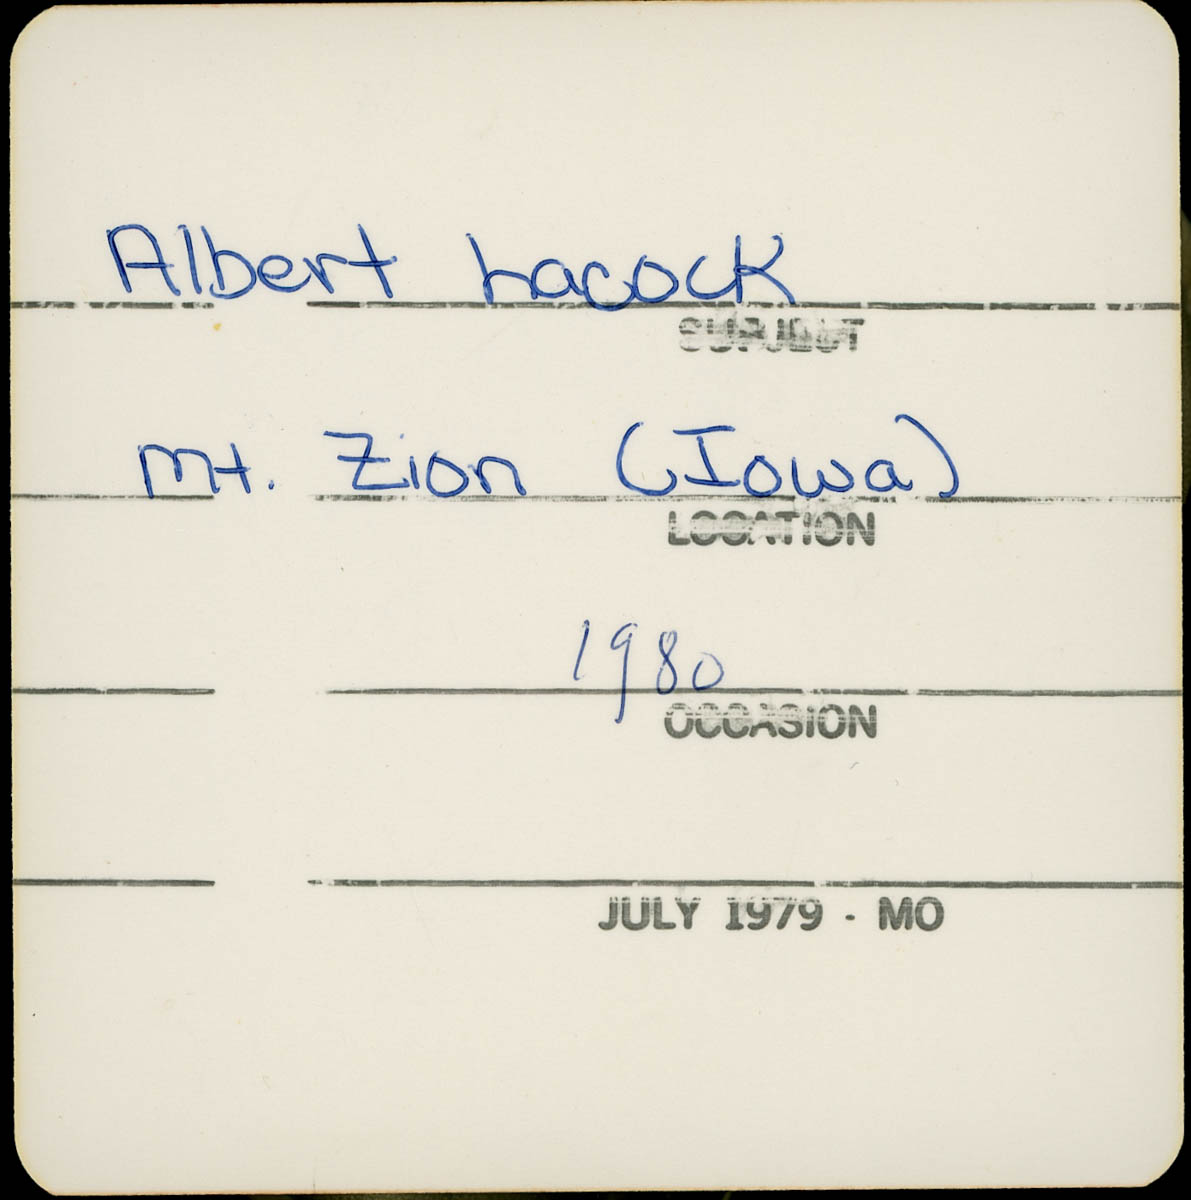 Albert Lacock
SUBJECT
Mt. Zion (Iowa)
LOCATION
1980
OCCASION
JULY 1979 - MO